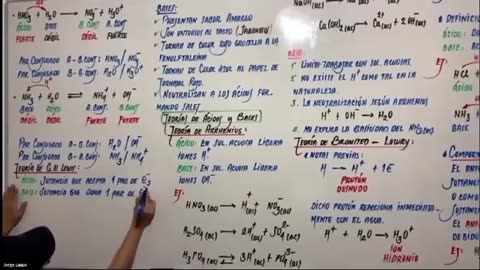 HNO₃ + H₂O ⇌ NO₃⁻ + H₃O⁺
ÁCIDO BASE B. CONJ. A. CONJ.
FUERTE DÉBIL DÉBIL FUERTE
PAR CONJUGADO A-B.CONJ: HNO₃/NO₃⁻
PAR CONJUGADO B-A.CONJ: H₂O/H₃O⁺
NH₃ + H₂O ⇌ NH₄⁺ + OH⁻
BASE ÁCIDO A. CONJ B. CONJ
DÉBIL DÉBIL FUERTE FUERTE
PAR CONJUGADO A-B.CONJ: H₂O/OH⁻
PAR CONJUGADO B-A.CONJ: NH₃/NH₄⁺
TEORÍA DE G.N. LEWIS:
ÁCIDO: SUSTANCIA QUE ACEPTA 1 PAR DE e⁻s
BASE: SUSTANCIA QUE DONA 1 PAR DE
BASES:
PRESENTAN SABOR AMARGO
SON UNTUOSOS AL TACTO (JABONOSO)
TORNAN DE COLOR ROJO GROSELLA A LA
FENOLFTALEINA
TORNAN DE COLOR AZUL AL PAPEL DE
TORNASOL ROJO.
NEUTRALIZAN A LOS ÁCIDOS FOR
MANDO SALES
TEORÍAS DE ÁCIDOS Y BASES
TEORÍA DE ARRHENIUS:
ÁCIDO: EN SOL. ACUOSA LIBERA
IONES H⁺
BASE: EN SOL. ACUOSA LIBERA
IONES OH⁻
EJ:
HNO₃(ac) → H⁺(ac) + NO₃⁻(ac)
H₂SO₄(ac) → 2H⁺(ac) + SO₄⁼(ac)
H₃PO₄(ac) → 3H⁺(ac) + PO₄³⁻(ac)
Ca(OH)₂(ac) → Ca²⁺(ac) + 2OH⁻(ac)
NOTA:
1. LIMITA TRABAJAR CON SOL. ACUOSAS.
2. NO EXISTE EL H⁺ COMO TAL EN LA
NATURALEZA.
3. LA NEUTRALIZACIÓN SEGÚN ARRHENIUS
H⁺ + OH⁻ → H₂O
4. NO EXPLICA LA BASICIDAD DEL NH₃(ac)
TEORÍA DE BRONSTED - LOWRY:
NOTAS PREVIAS:
H → H⁺ + 1e⁻
PROTÓN
DESNUDO
DICHO PROTÓN REACCIONA INMEDIATA-
MENTE CON EL AGUA.
H⁺ + H₂O → H₃O⁺
ION HIDRONIO
DEFINICIÓ
ÁCIDO:
BASE:
EJ:
HCl +
ÁCIDO
FUERTE
COMPORTA
EJ: